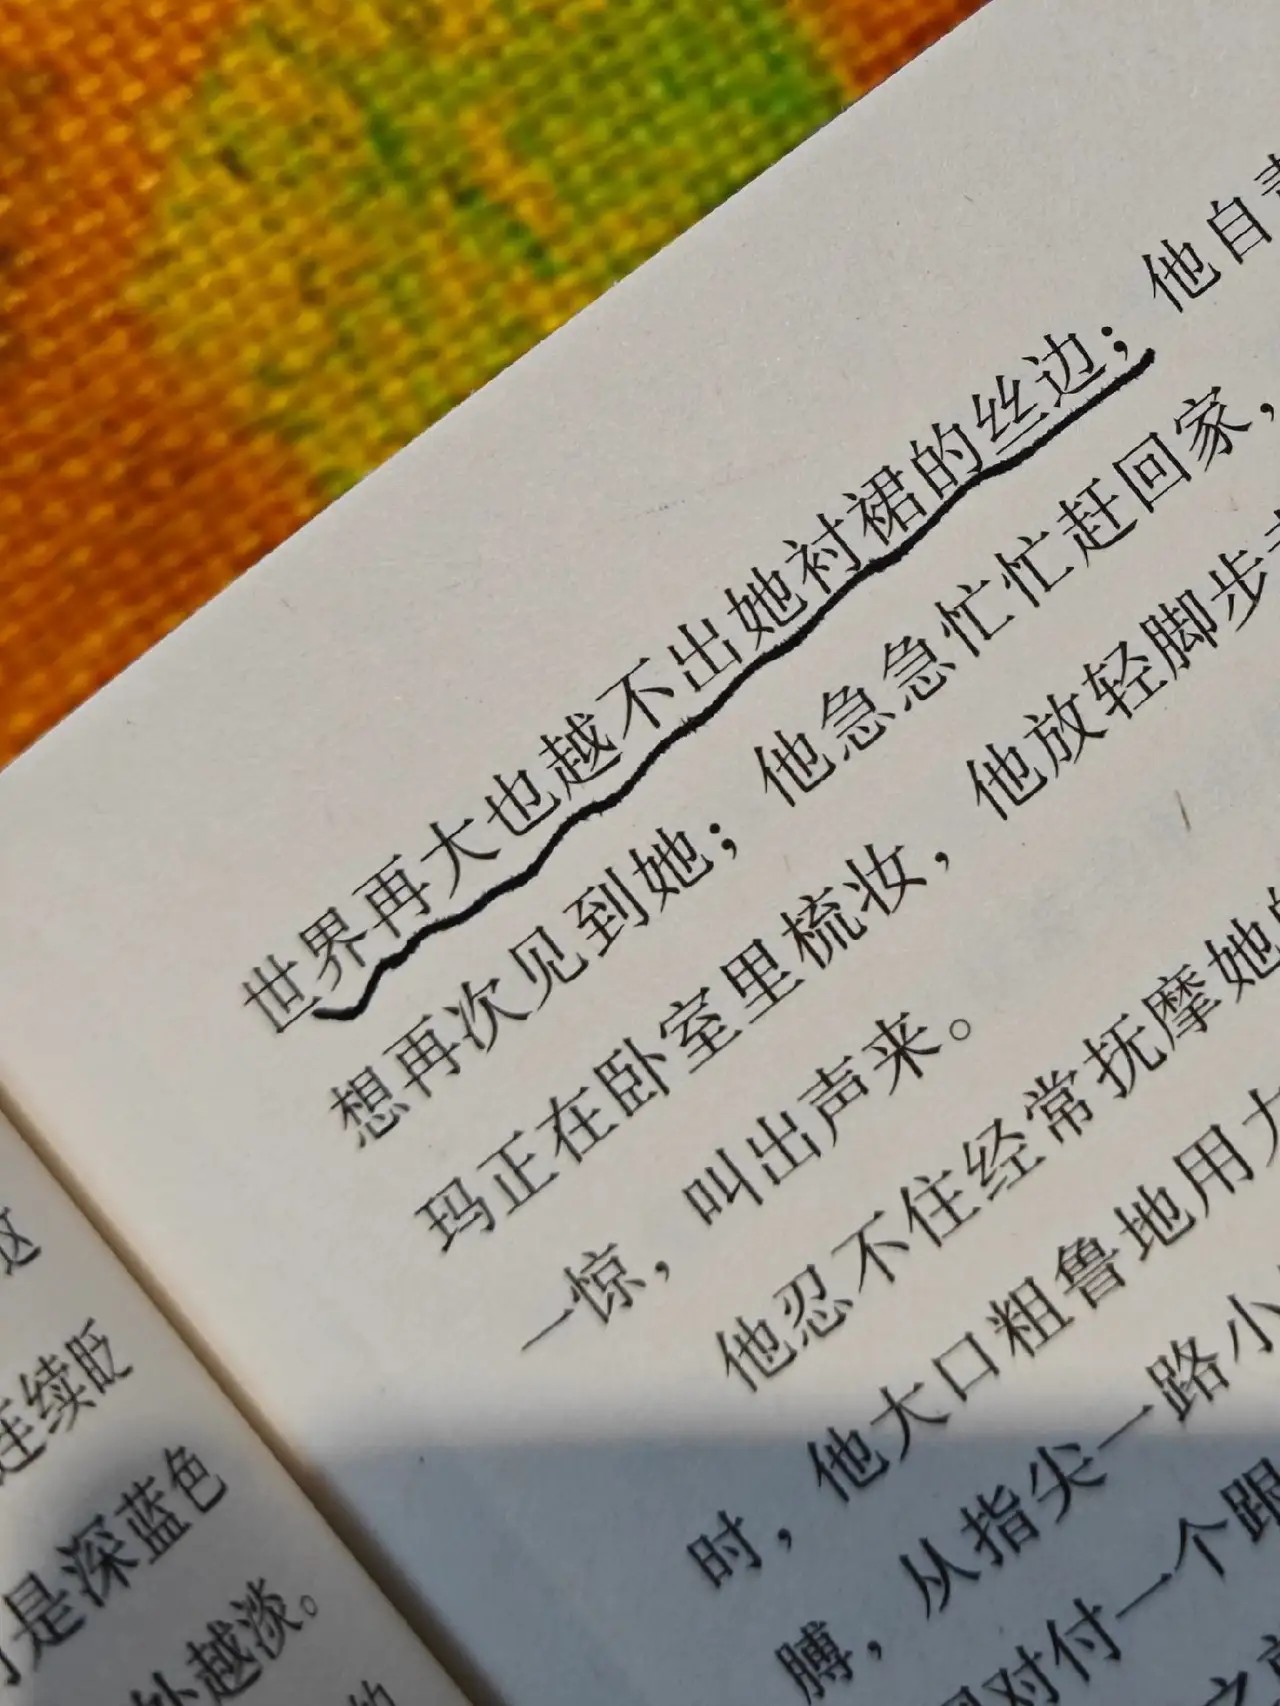 连续眨
是深蓝色
越淡。
的
世界再大也越不出她衬裙的丝边；他自
想再次见到她；他急急忙忙赶回家，
玛正在卧室里梳妆，他放轻脚步
一惊，叫出声来。
他忍不住经常抚摩她的
时，他大口粗鲁地用
膊，从指尖一路小
对付一个跟